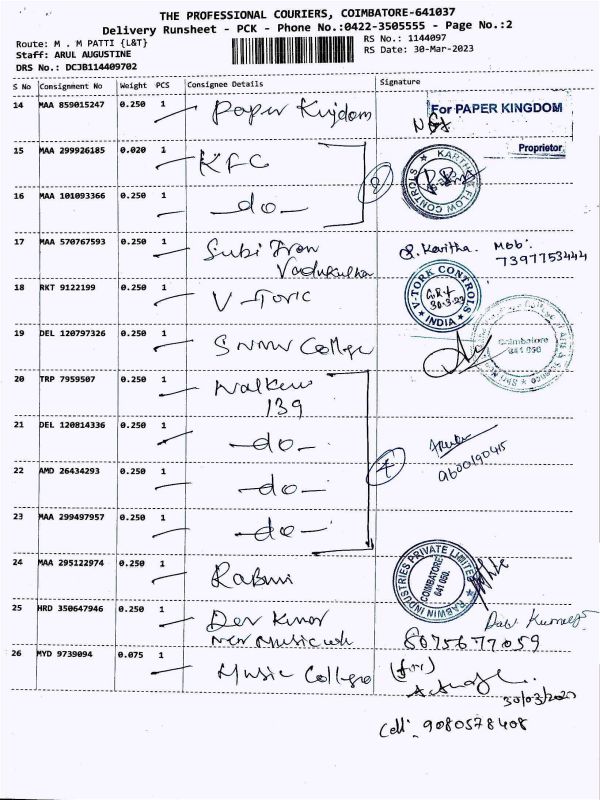 THE PROFESSIONAL COURIERS, COIMBATORE-641037
Delivery Runsheet - PCK - Phone No.:0422-3505555 - Page No.:2
Route: M . M PATTI {L&T}
RS No.: 1144097
Staff: ARUL AUGUSTINE
RS Date: 30-Mar-2023
DRS No.: DCJB114409702
S No Consignment No Weight PCS Consignee Details Signature
14 MAA 859015247 0.250 1 Paper Kingdom
For PAPER KINGDOM
Proprietor
15 MAA 299926185 0.020 1 KFC
KARTHI FLOW CONTROLS
16 MAA 101093366 0.250 1 -do-
2
17 MAA 570767593 0.250 1 Subi Iron
Kavitha. Mob:
7397753444
18 RKT 9122199 0.250 1 V-Toric
V-TORK CONTROLS
30.3.23
INDIA
19 DEL 120797326 0.250 1 SNMV College
Coimbatore
641 050
20 TRP 7959507 0.250 1 Walkers
139
21 DEL 120814336 0.250 1 -do-
9600190415
4
22 AMD 26434293 0.250 1 -do-
23 MAA 299497957 0.250 1 -do-
24 MAA 295122974 0.250 1 Rabwi
RABWIN INDUSTRIES PRIVATE LIMITED
COIMBATORE
641 050.
25 HRD 350647946 0.250 1 Dev Kumar
New Music
8075677059
26 MYD 9739094 0.075 1 Music College
30/03/2023
Cell: 9080578408